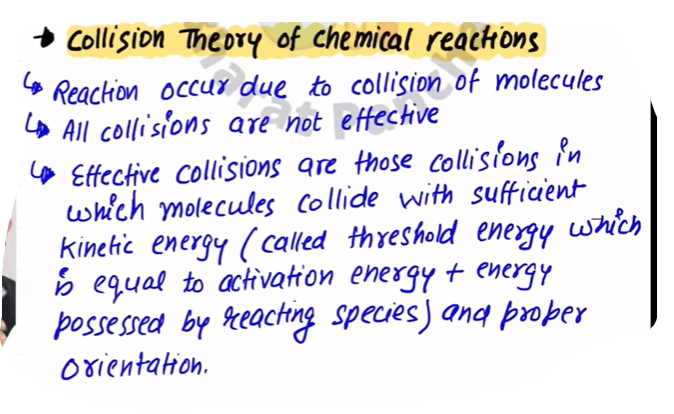 → Collision Theory of chemical reactions
↳ Reaction occur due to collision of molecules
↳ All collisions are not effective
↳ Effective collisions are those collisions in
which molecules collide with sufficient
kinetic energy (called threshold energy which
is equal to activation energy + energy
possessed by reacting species) and proper
orientation.